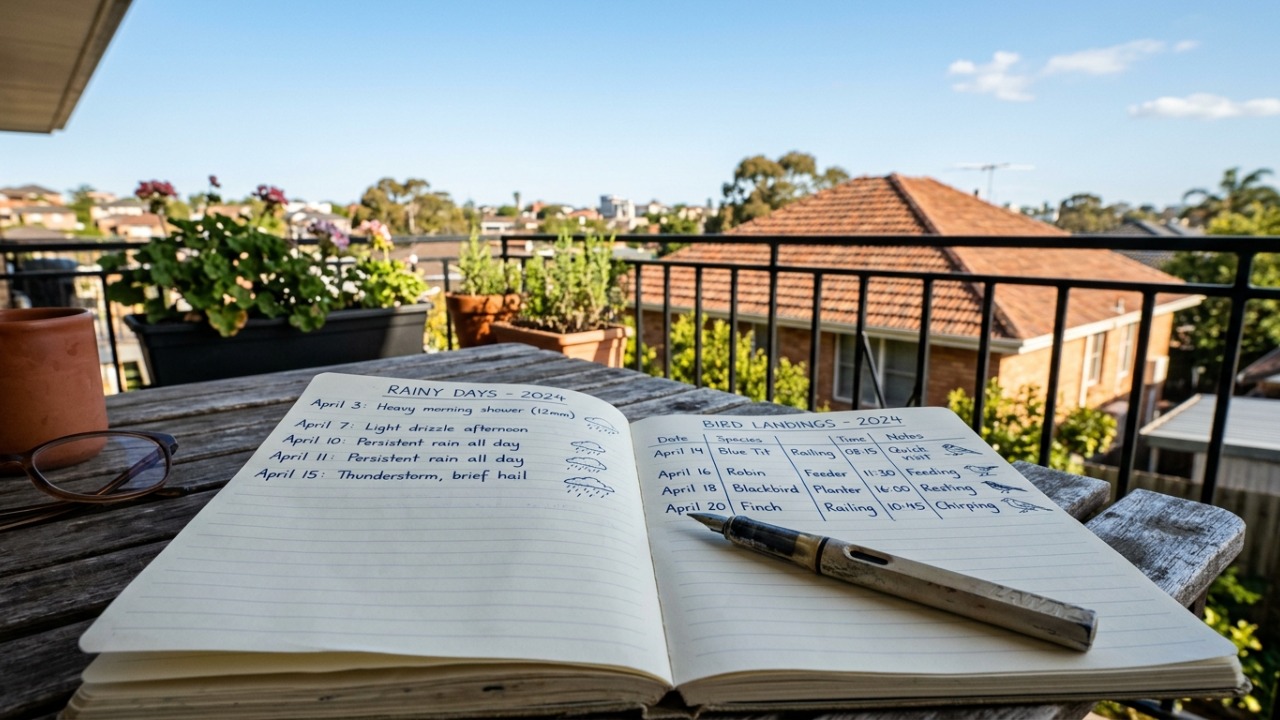 RAINY DAYS - 2024
April 3: Heavy morning shower (12mm)
April 7: Light drizzle afternoon
April 10: Persistent rain all day
April 11: Persistent rain all day
April 15: Thunderstorm, brief hail
BIRD LANDINGS - 2024
Date Species Time Notes
April 14 Blue Tit Railing 08:15 Quick visit
April 16 Robin Feeder 11:30 Feeding
April 18 Blackbird Planter 16:00 Resting
April 20 Finch Railing 10:45 Chirping